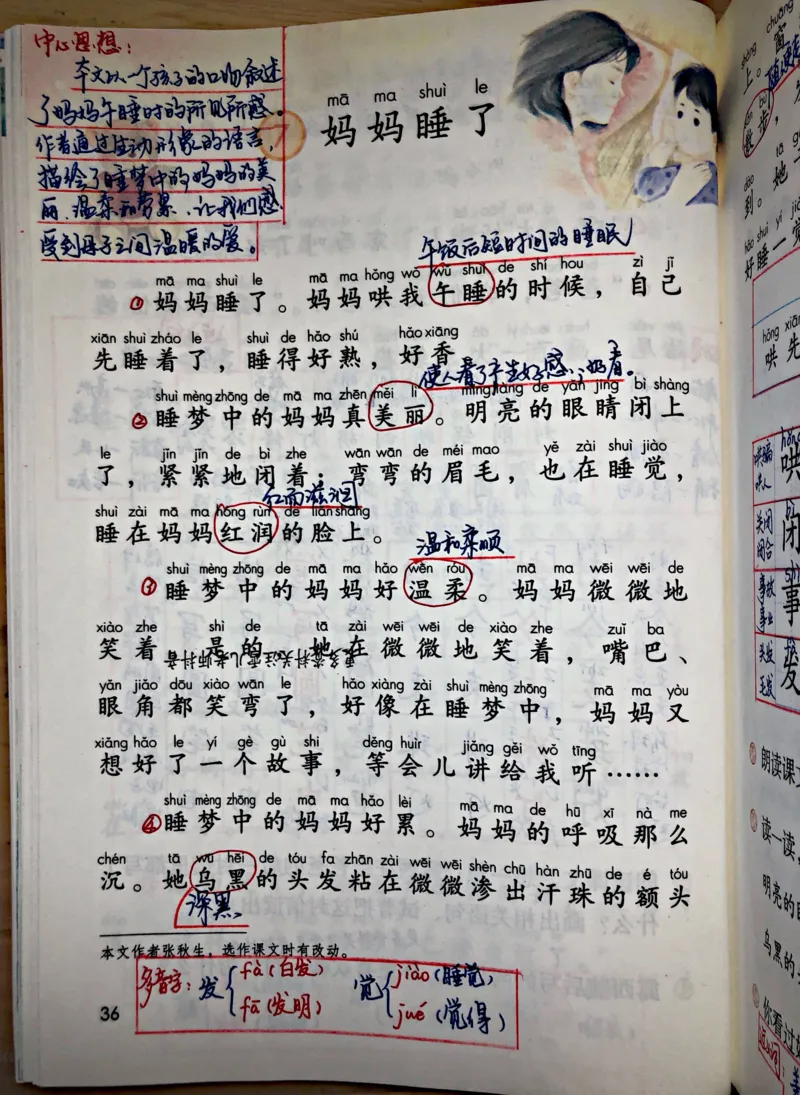 中心思想：
本文以一个孩子的口吻叙述
了妈妈午睡时的所见所感。
作者通过生动形象的语言，
描绘了睡梦中的妈妈的美
丽、温柔和劳累，让我们感
受到母子之间温暖的爱。
mā ma shuì le
妈妈睡了
午饭后短时间的睡眠
mā ma shuì le mā ma hǒng wǒ wǔ shuì de shí hou zì jǐ
①妈妈睡了。妈妈哄我午睡的时候，自己
xiān shuì zháo le shuì de hǎo shú hǎo xiāng
先睡着了，睡得好熟，好香
使人看了产生好感；好看。
shuì mèng zhōng de mā ma zhēn měi lì míng liàng de yǎn jīng bì shàng
②睡梦中的妈妈真美丽。明亮的眼睛闭上
le jǐn jǐn de bì zhe wān wān de méi mao yě zài shuì jiào
了，紧紧地闭着；弯弯的眉毛，也在睡觉，
红而滋润
shuì zài mā ma hóng rùn de liǎn shang
睡在妈妈红润的脸上。
温和柔顺
shuì mèng zhōng de mā ma hǎo wēn róu mā ma wēi wēi de
③睡梦中的妈妈好温柔。妈妈微微地
xiào zhe shì de tā zài wēi wēi de xiào zhe zuǐ ba
笑着 是的 她在微微地笑着，嘴巴、
更多资料关注雪儿老师抖音
yǎn jiǎo dōu xiào wān le hǎo xiàng zài shuì mèng zhōng mā ma yòu
眼角都笑弯了，好像在睡梦中，妈妈又
xiǎng hǎo le yí gè gù shi děng huìr jiǎng gěi wǒ tīng
想好了一个故事，等会儿讲给我听……
shuì mèng zhōng de mā ma hǎo lèi mā ma de hū xī nà me
④睡梦中的妈妈好累。妈妈的呼吸那么
chén tā wū hēi de tóu fa zhān zài wēi wēi shèn chū hàn zhū de é tóu
沉。她乌黑的头发粘在微微渗出汗珠的额头
深黑
本文作者张秋生，选作课文时有改动。
多音字：发 fà（白发） 觉 jiào（睡觉）
fā（发明） jué（觉得）
36
哄
闭
事
发
朗读课
读一读，
明亮的
乌黑的
你看过